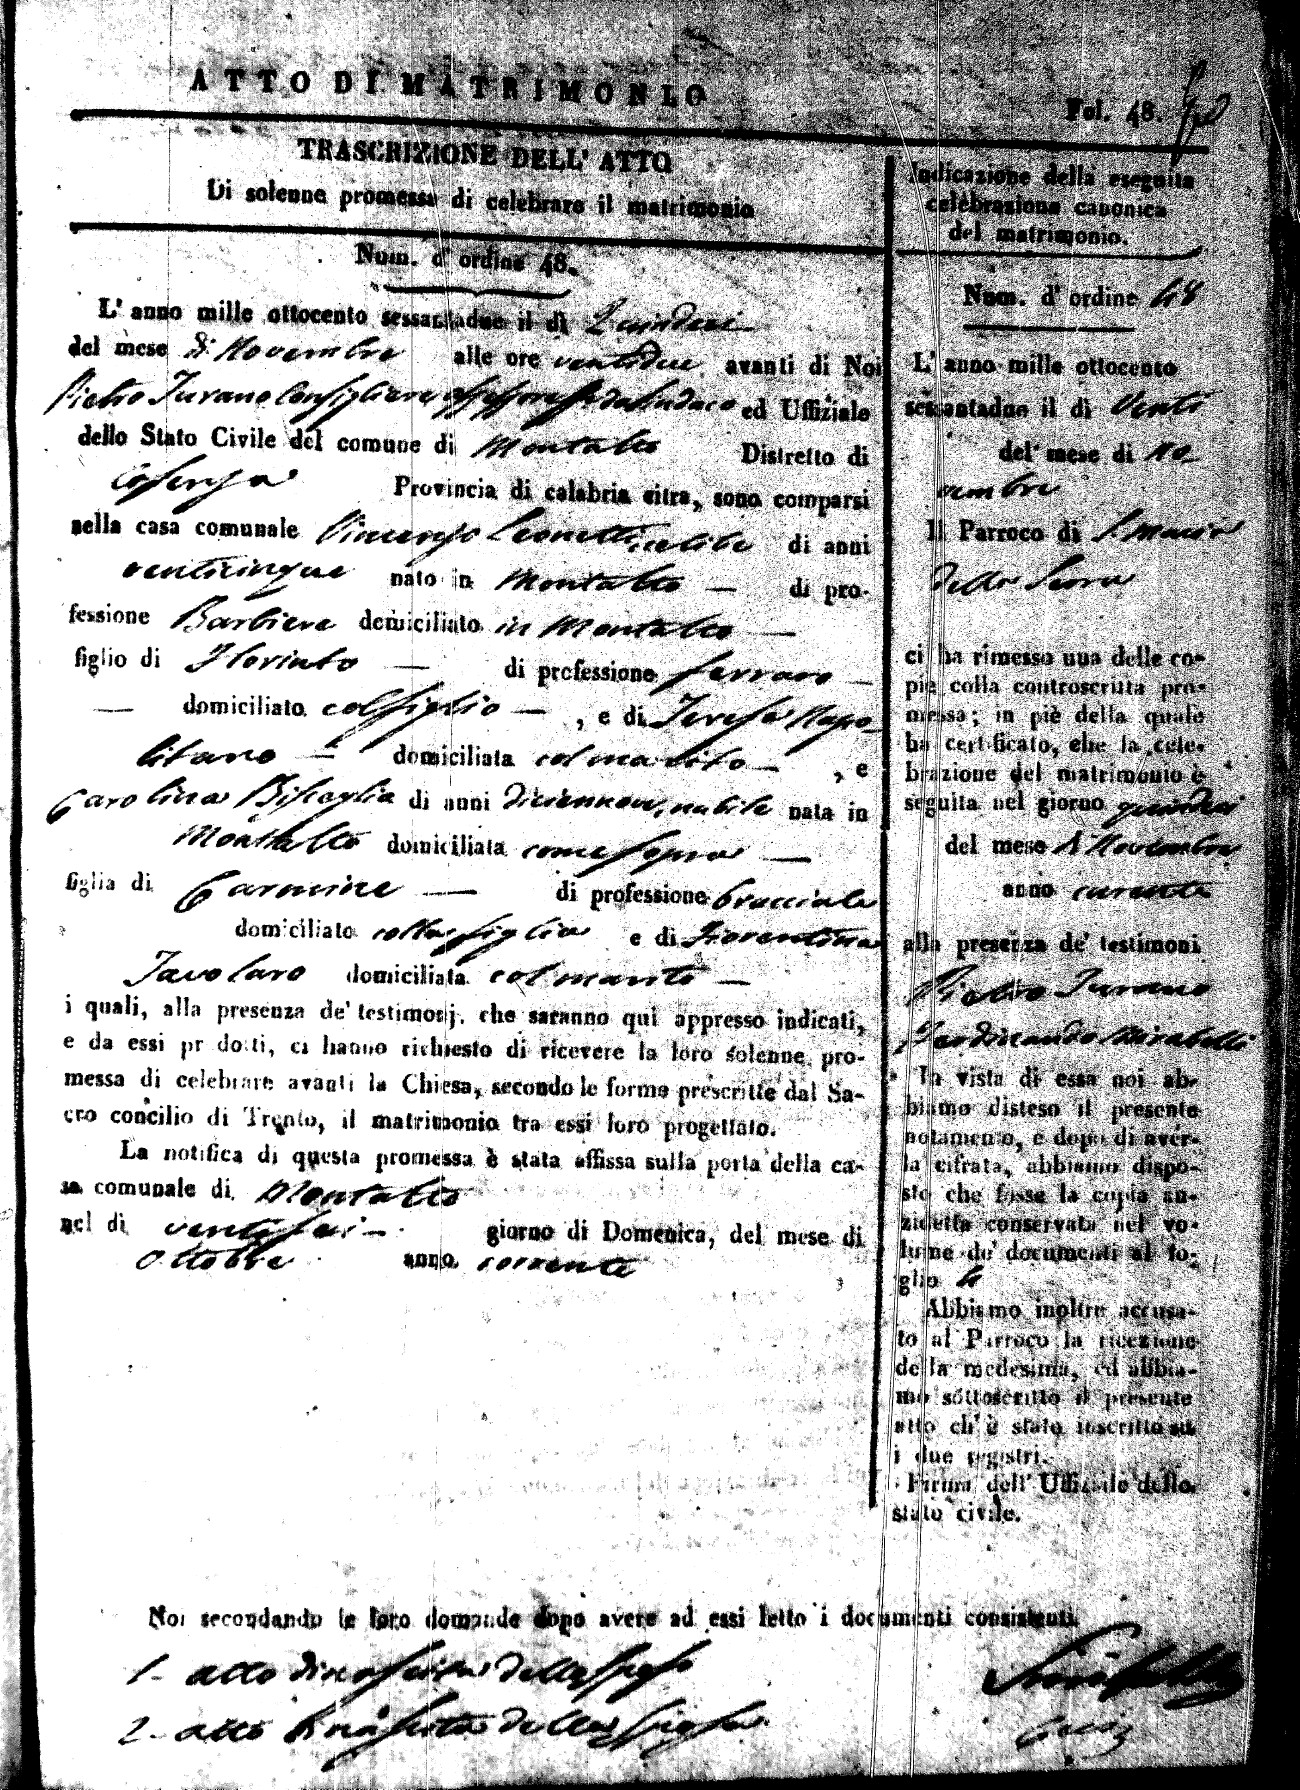 ATTO DI MATRIMONIO
Fol. 48.
TRASCRIZIONE DELL' ATTO
Di solenne promessa di celebrare il matrimonio
Num. d' ordine 48.
L' anno mille ottocento sessantadue il dì Quindeci
del mese di Novembre alle ore ventidue avanti di Noi
Pietro Turano Consigliere ff da Sindaco ed Uffiziale
dello Stato Civile del comune di Montalto Distretto di
Cosenza Provincia di calabria citra, sono comparsi
nella casa comunale Vincenzo Leonetti celibe di anni
venticinque nato in Montalto — di pro-
fessione Barbiere domiciliato in Montalto —
figlio di Florindo — di professione ferraro —
— domiciliato col figlio — , e di Teresa Napo
litano — domiciliata col marito — , e
Carolina Bisceglia di anni diciannove, nubile nata in
Montalto domiciliata come sopra —
figlia di Carmine — di professione bracciale
domiciliato colla figlia e di Fiorentina
Tavolaro domiciliata col marito —
i quali, alla presenza de' testimonj. che saranno qui appresso indicati,
e da essi pr dotti, ci hanno richiesto di ricevere la loro solenne pro-
messa di celebrare avanti la Chiesa, secondo le forme prescritte dal Sa-
cro concilio di Trento, il matrimonio tra essi loro progettato.
La notifica di questa promessa è stata affissa sulla porta della ca-
sa comunale di Montalto
nel di ventisei — giorno di Domenica, del mese di
Ottobre anno corrente
Indicazione della eseguita
celebrazione canonica
del matrimonio.
Num. d' ordine 48
L' anno mille ottocento
sessantadue il di Venti
del mese di No
vembre
Il Parroco di S. Maria
della Serra
ci ha rimesso una delle co-
pie colla controscritta pro-
messa; in piè della quale
ha certificato, che la cele-
brazione del matrimonio è
seguita nel giorno quindeci
del mese di Novembre
anno corrente
alla presenza de' testimoni
Pietro Turano
Ferdinando Mirabelli
In vista di essa noi ab-
biamo disteso il presente
notamento, e dopo di aver-
la cifrata, abbiamo dispo-
sto che fosse la copia an-
zidetta conservata nel vo-
lume de' documenti al fo-
glio
Abbiamo inoltre accusa-
to al Parroco la ricezione
della medesima, ed abbia-
mo sottoscritto il presente
atto ch' è stato inscritto su
i due registri.
Firma dell' Uffiziale dello
stato civile.
Noi secondando le loro domande dopo avere ad essi letto i documenti consistenti.
1- atto di nascita dello sposo
2- atto di nascita della sposa